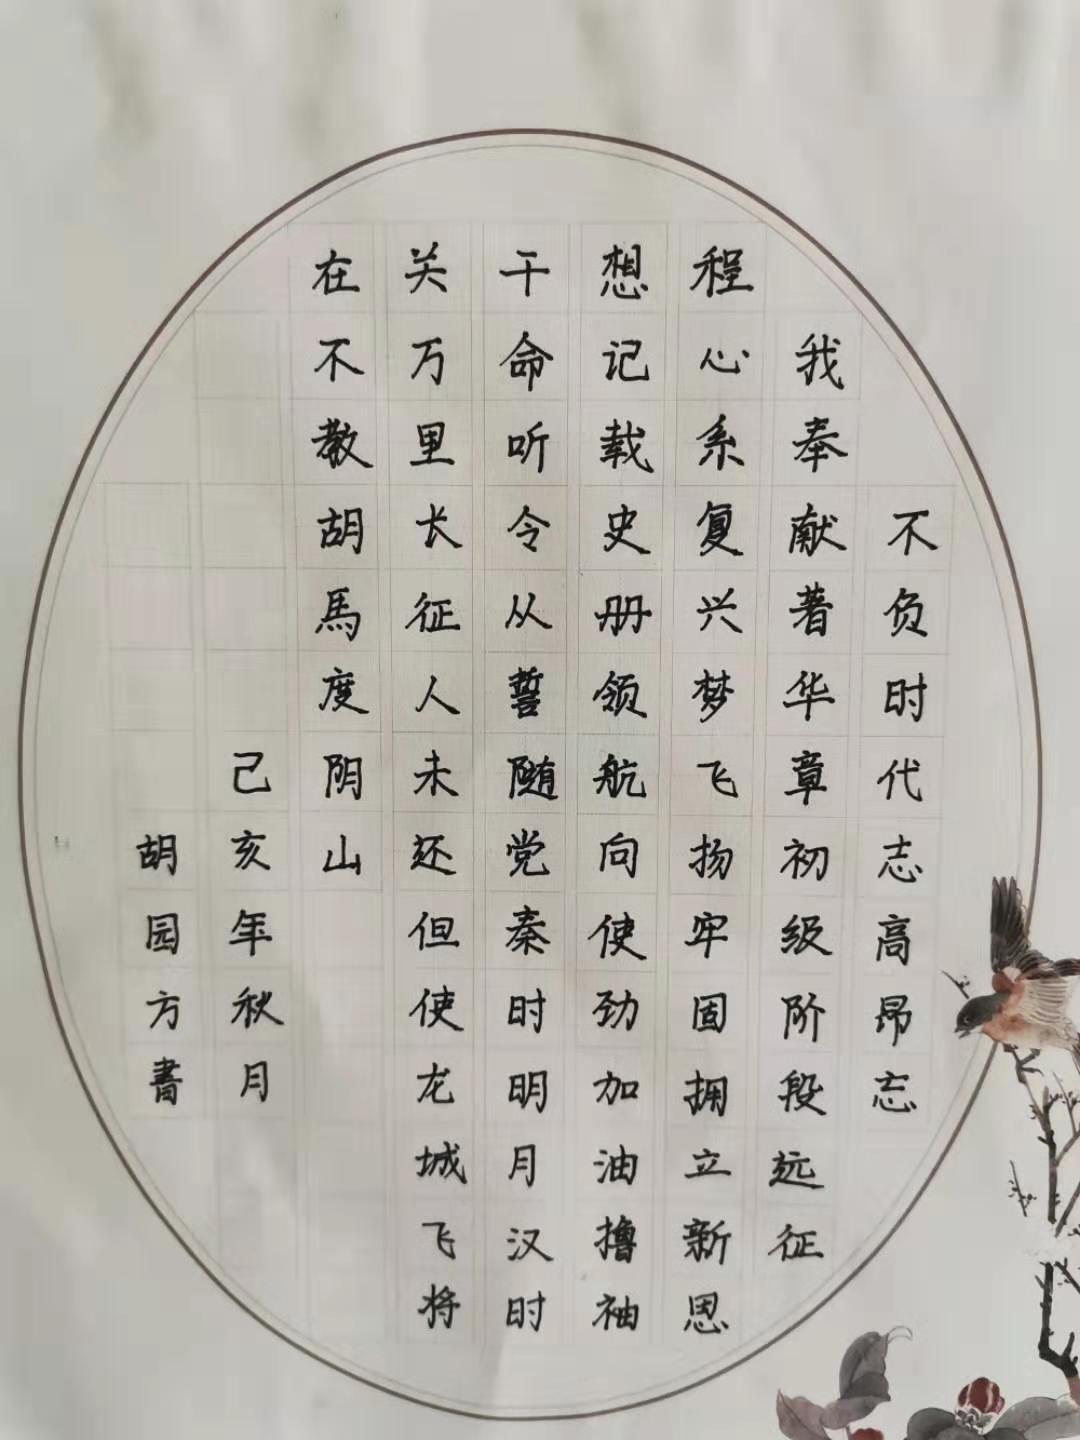 不负时代志高昂忘
我奉献著华章初级阶段远征
程心系复兴梦飞扬牢固拥立新思
想记载史册领航向使劲加油撸袖
干命听令从誓随党秦时明月汉时
关万里长征人未还但使龙城飞将
在不教胡馬度阴山
己亥年秋月
胡园方書